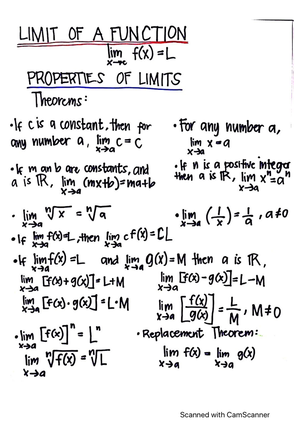 LIMIT OF A FUNCTION
lim x→c f(x)=L
PROPERTIES OF LIMITS
Theorems:
• If c is a constant, then for any number a, lim x→a c = c
• For any number a, lim x→a x = a
• If m an b are constants, and a is ℝ, lim x→a (mx+b)=ma+b
• If n is a positive integer then a is ℝ, lim x→a xⁿ=aⁿ
• lim x→a ⁿ√x = ⁿ√a
• lim x→a (1/x) = 1/a, a≠0
• If lim x→a f(x)=L, then lim x→a c f(x)= CL
• If lim x→a f(x)= L and lim x→a g(x)= M then a is ℝ,
lim x→a [f(x)+g(x)]= L+M
lim x→a [f(x)-g(x)]=L-M
lim x→a [f(x)•g(x)]= L•M
lim x→a [f(x)/g(x)] = L/M, M≠0
• lim x→a [f(x)]ⁿ = Lⁿ
lim x→a ⁿ√f(x) = ⁿ√L
• Replacement Theorem:
lim x→a f(x) = lim x→a g(x)
Scanned with CamScanner